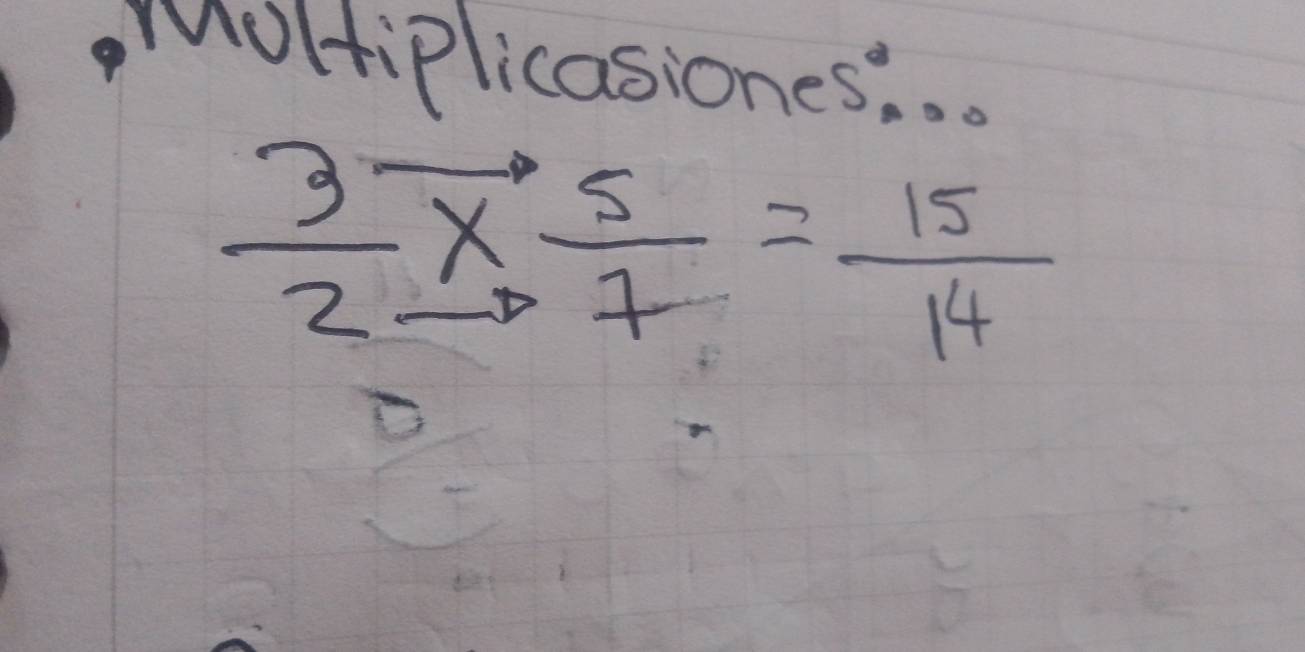 .Multiplicasiones:...
3/2 → x → 5/7 = 15/14